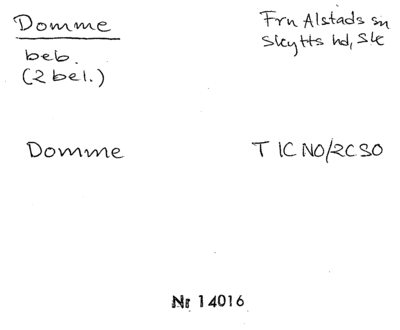 Domme
Fru Alstads sn
beb.
Skytts hd, Sk
(2 bel.)
Domme
T 1C NO/2C SO
Nr 14016